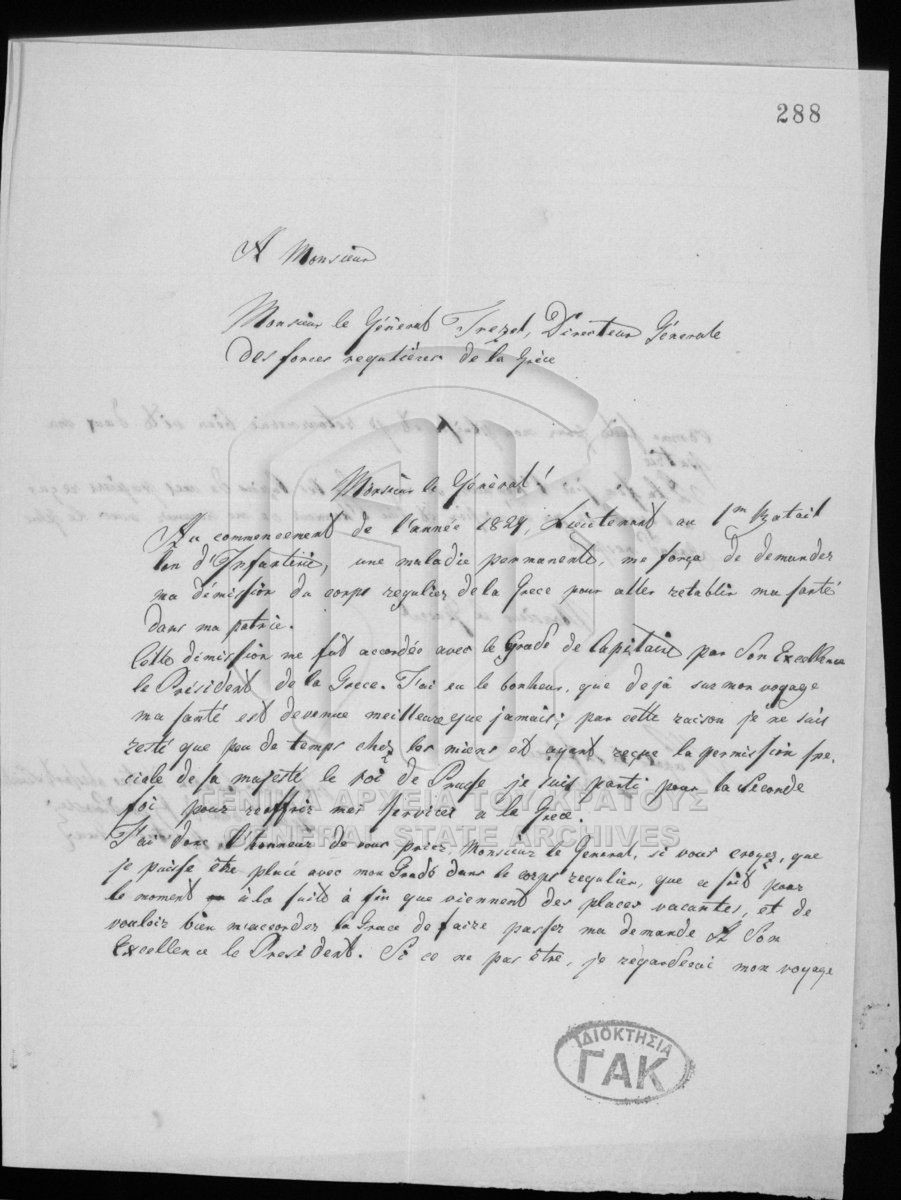 288
A Monsieur
Monsieur le Général Trezel, Directeur Générale
des forces regulières de la Grèce
Monsieur le Général!
Au commencement de l'année 1829, Lieutenant au 1m Batail
lon d'Infanterie, une maladie permanente, me força de demander
ma démission du corps regulier de la Grece pour aller retablir ma santé
dans ma patrie.
Cette dimission me fut accordée avec le Grade de Capitain par Son Excellence
le Président de la Grece. J'ai eu le bonheur, que dejà sur mon voyage
ma santé est devenue meilleure que jamais; par cette raison je ne suis
resté que peu de temps chez les miens et ayant reçue la permission spe,
ciale de sa majesté le roi de Prusse je suis parti pour la seconde
foi pour reoffrir mes services a la Grece.
J'ai donc l'honneur de vous prier, Monsieur le General, si vous croyez, que
je puisse être placé avec mon Grade dans le corps regulier, que ce soit pour
le moment à la suite à fin que viennent des places vacantes, et de
vouloir bien m'accorder la Grace de faire passer ma demande A Son
Excellence le President. Si ce ne pas être, je regarderai mon voyage
ΓΕΝΙΚΑ ΑΡΧΕΙΑ ΤΟΥ ΚΡΑΤΟΥΣ
GENERAL STATE ARCHIVES
ΙΔΙΟΚΤΗΣΙΑ
ΓΑΚ